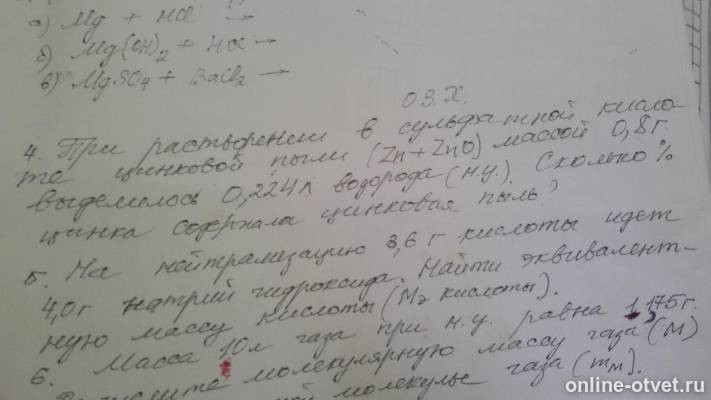 а) Mg + HCl →
б) Mg(OH)₂ + HCl →
в) MgSO₄ + BaCl₂ →
03.X.
4. При растворении в сульфатной кисло-
те цинковой пыли (Zn + ZnO) массой 0,8 г.
выделилось 0,224 л водорода (н.у.). Сколько %
цинка содержала цинковая пыль?
5. На нейтрализацию 3,6 г кислоты идет
4,0 г натрий гидроксида. Найти эквивалент-
ную массу кислоты (Мэ кислоты).
6. Масса 10 л газа при н.у. равна 1,175 г.
молекулярную массу газа (М)
молекулы газа (mм).
online-otvet.ru